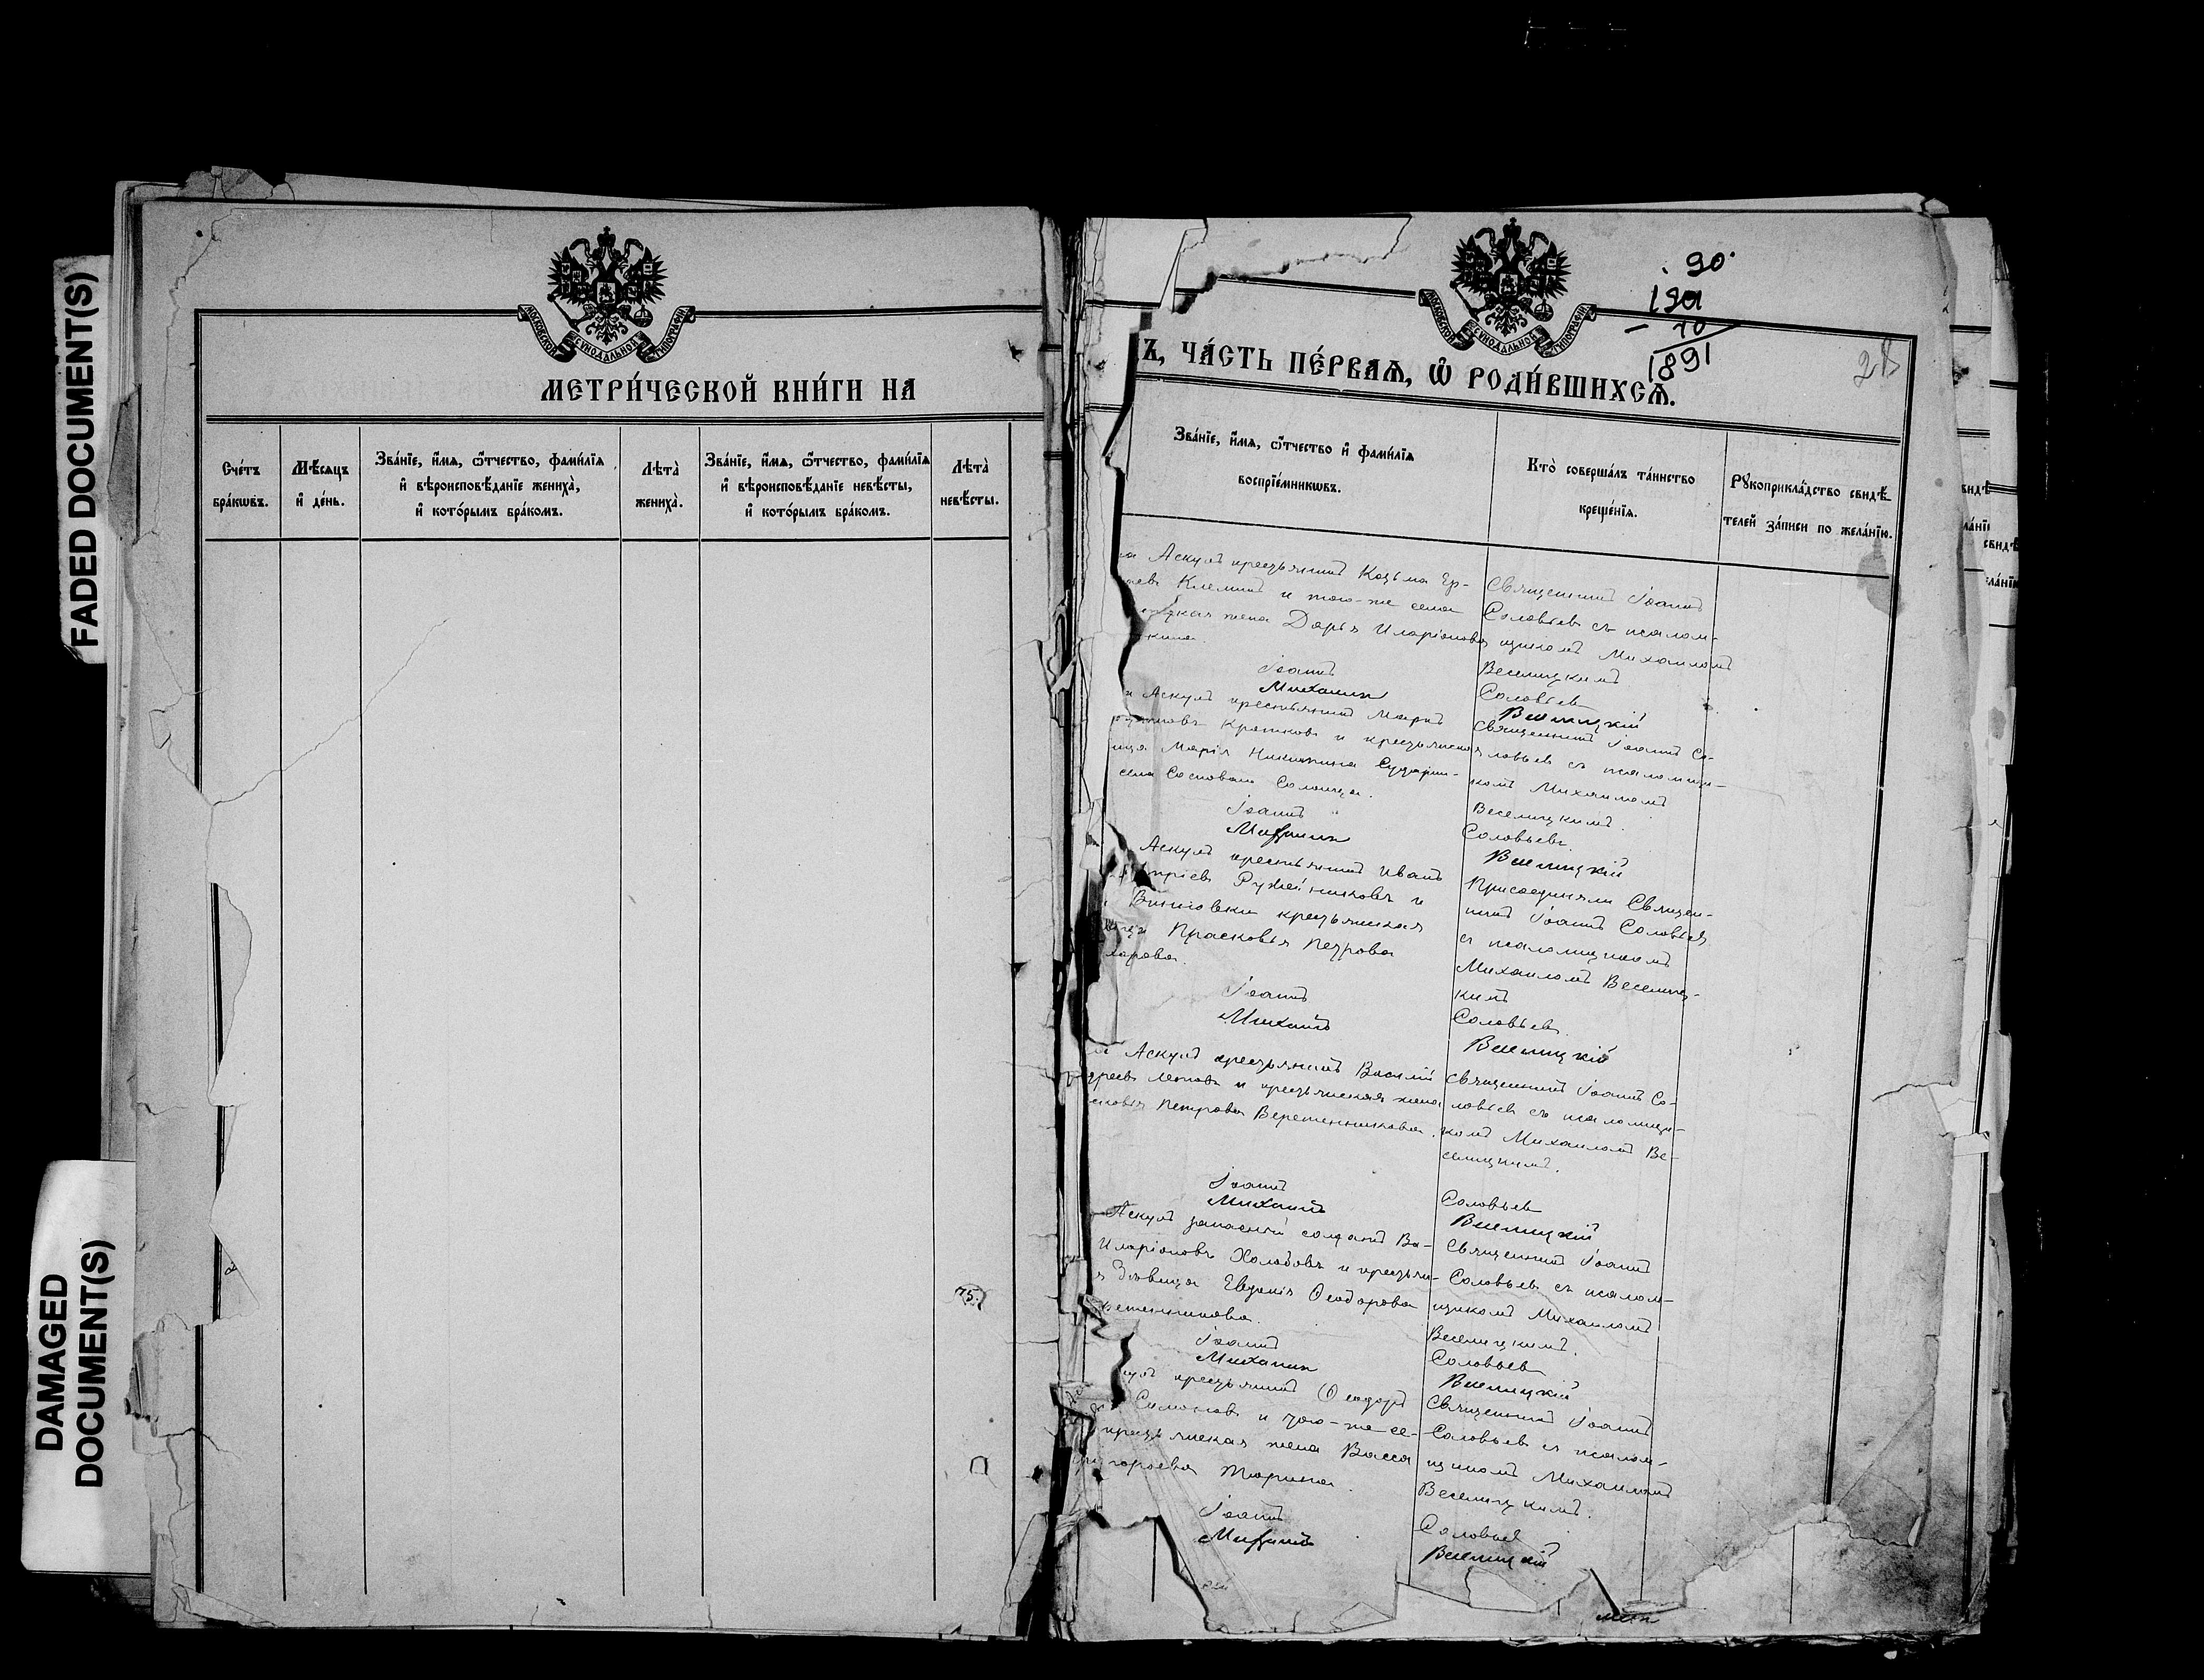 FADED DOCUMENT(S)
DAMAGED
DOCUMENT(S)
МОСКОВСКОЙ СУНОДАЛЬНОЙ ТИПОГРАФІИ
МЕТРИ́ЧЕСКОЙ КНИ́ГИ НА
Сче́тъ
бра́кѡвъ.
Мѣ́сяцъ
и҆ де́нь.
Зва́нїе, и҆́мѧ, ѻ҆́тчество, фами́лїѧ
и҆ вѣроисповѣ́данїе жениха̀,
и҆ кото́рымъ бра́комъ.
Лѣта̀
жениха̀.
Зва́нїе, и҆́мѧ, ѻ҆́тчество, фами́лїѧ
и҆ вѣроисповѣ́данїе невѣ́сты,
и҆ кото́рымъ бра́комъ.
Лѣта̀
невѣ́сты.
75
МОСКОВСКОЙ СУНОДАЛЬНОЙ ТИПОГРАФІИ
90
10
1891
28
Ъ, ЧА́СТЬ ПЕ́РВАѦ, Ѡ҆ РОДИ́ВШИХСѦ.
Зва́нїе, и҆́мѧ, ѻ҆́тчество и҆ фами́лїѧ
воспрїе́мникѡвъ.
Кто̀ соверша́лъ та́инство
креще́нїѧ.
Рꙋкоприкла́дство свидѣ́-
телей за́писи по жела́нїю.
Аскулъ крестьянинъ Козьма Ер-
Клеминъ и того-же села
жена Дарья Иларіонова
Священникъ Іоаннъ
Соловьевъ съ псалом-
щикомъ Михаиломъ
Веселицкимъ
Іоаннъ Соловьевъ
Михаилъ Веселицкій
Аскулъ крестьянинъ Маркъ
Кротковъ и крестьянская
Марія Никитина
села Сосноваго Солонца.
Священникъ Іоаннъ Со-
ловьевъ съ псаломщи-
комъ Михаиломъ
Веселицкимъ.
Іоаннъ Соловьевъ.
Михаилъ Веселицкій
Аскулъ крестьянинъ Иванъ
Ружейниковъ и
Винновки крестьянская
Прасковья Петрова
Присоединяли Священ-
никъ Іоаннъ Соловьевъ
съ псаломщикомъ
Михаиломъ Веселиц-
кимъ
Іоаннъ Соловьевъ.
Михаилъ Веселицкій
Аскулъ крестьянинъ Василій
и крестьянская жена
Петрова Веретенникова.
Священникъ Іоаннъ Со-
ловьевъ съ псаломщи-
комъ Михаиломъ Ве-
селицкимъ.
Іоаннъ Соловьевъ
Михаилъ Веселицкій
Аскулъ запасный солдатъ Ва-
Иларіоновъ Холодовъ и крестьян-
вдовица Евдокія Ѳеодорова
Священникъ Іоаннъ
Соловьевъ съ псалом-
щикомъ Михаиломъ
Веселицкимъ.
Іоаннъ Соловьевъ
Михаилъ Веселицкій
крестьянинъ Ѳеодоръ
Симоновъ и того-же се-
крестьянская жена Васса
Тюрина.
Священникъ Іоаннъ
Соловьевъ съ псалом-
щикомъ Михаиломъ
Веселицкимъ.
Іоаннъ Соловьевъ
Михаилъ Веселицкій